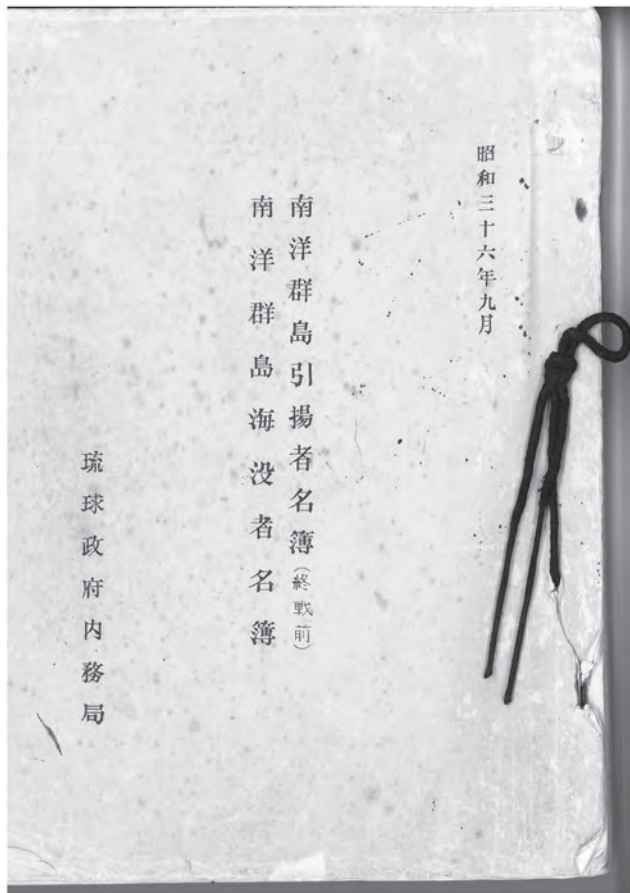 昭和三十六年九月
南洋群島引揚者名簿(終戦前)
南洋群島海没者名簿
琉球政府内務局